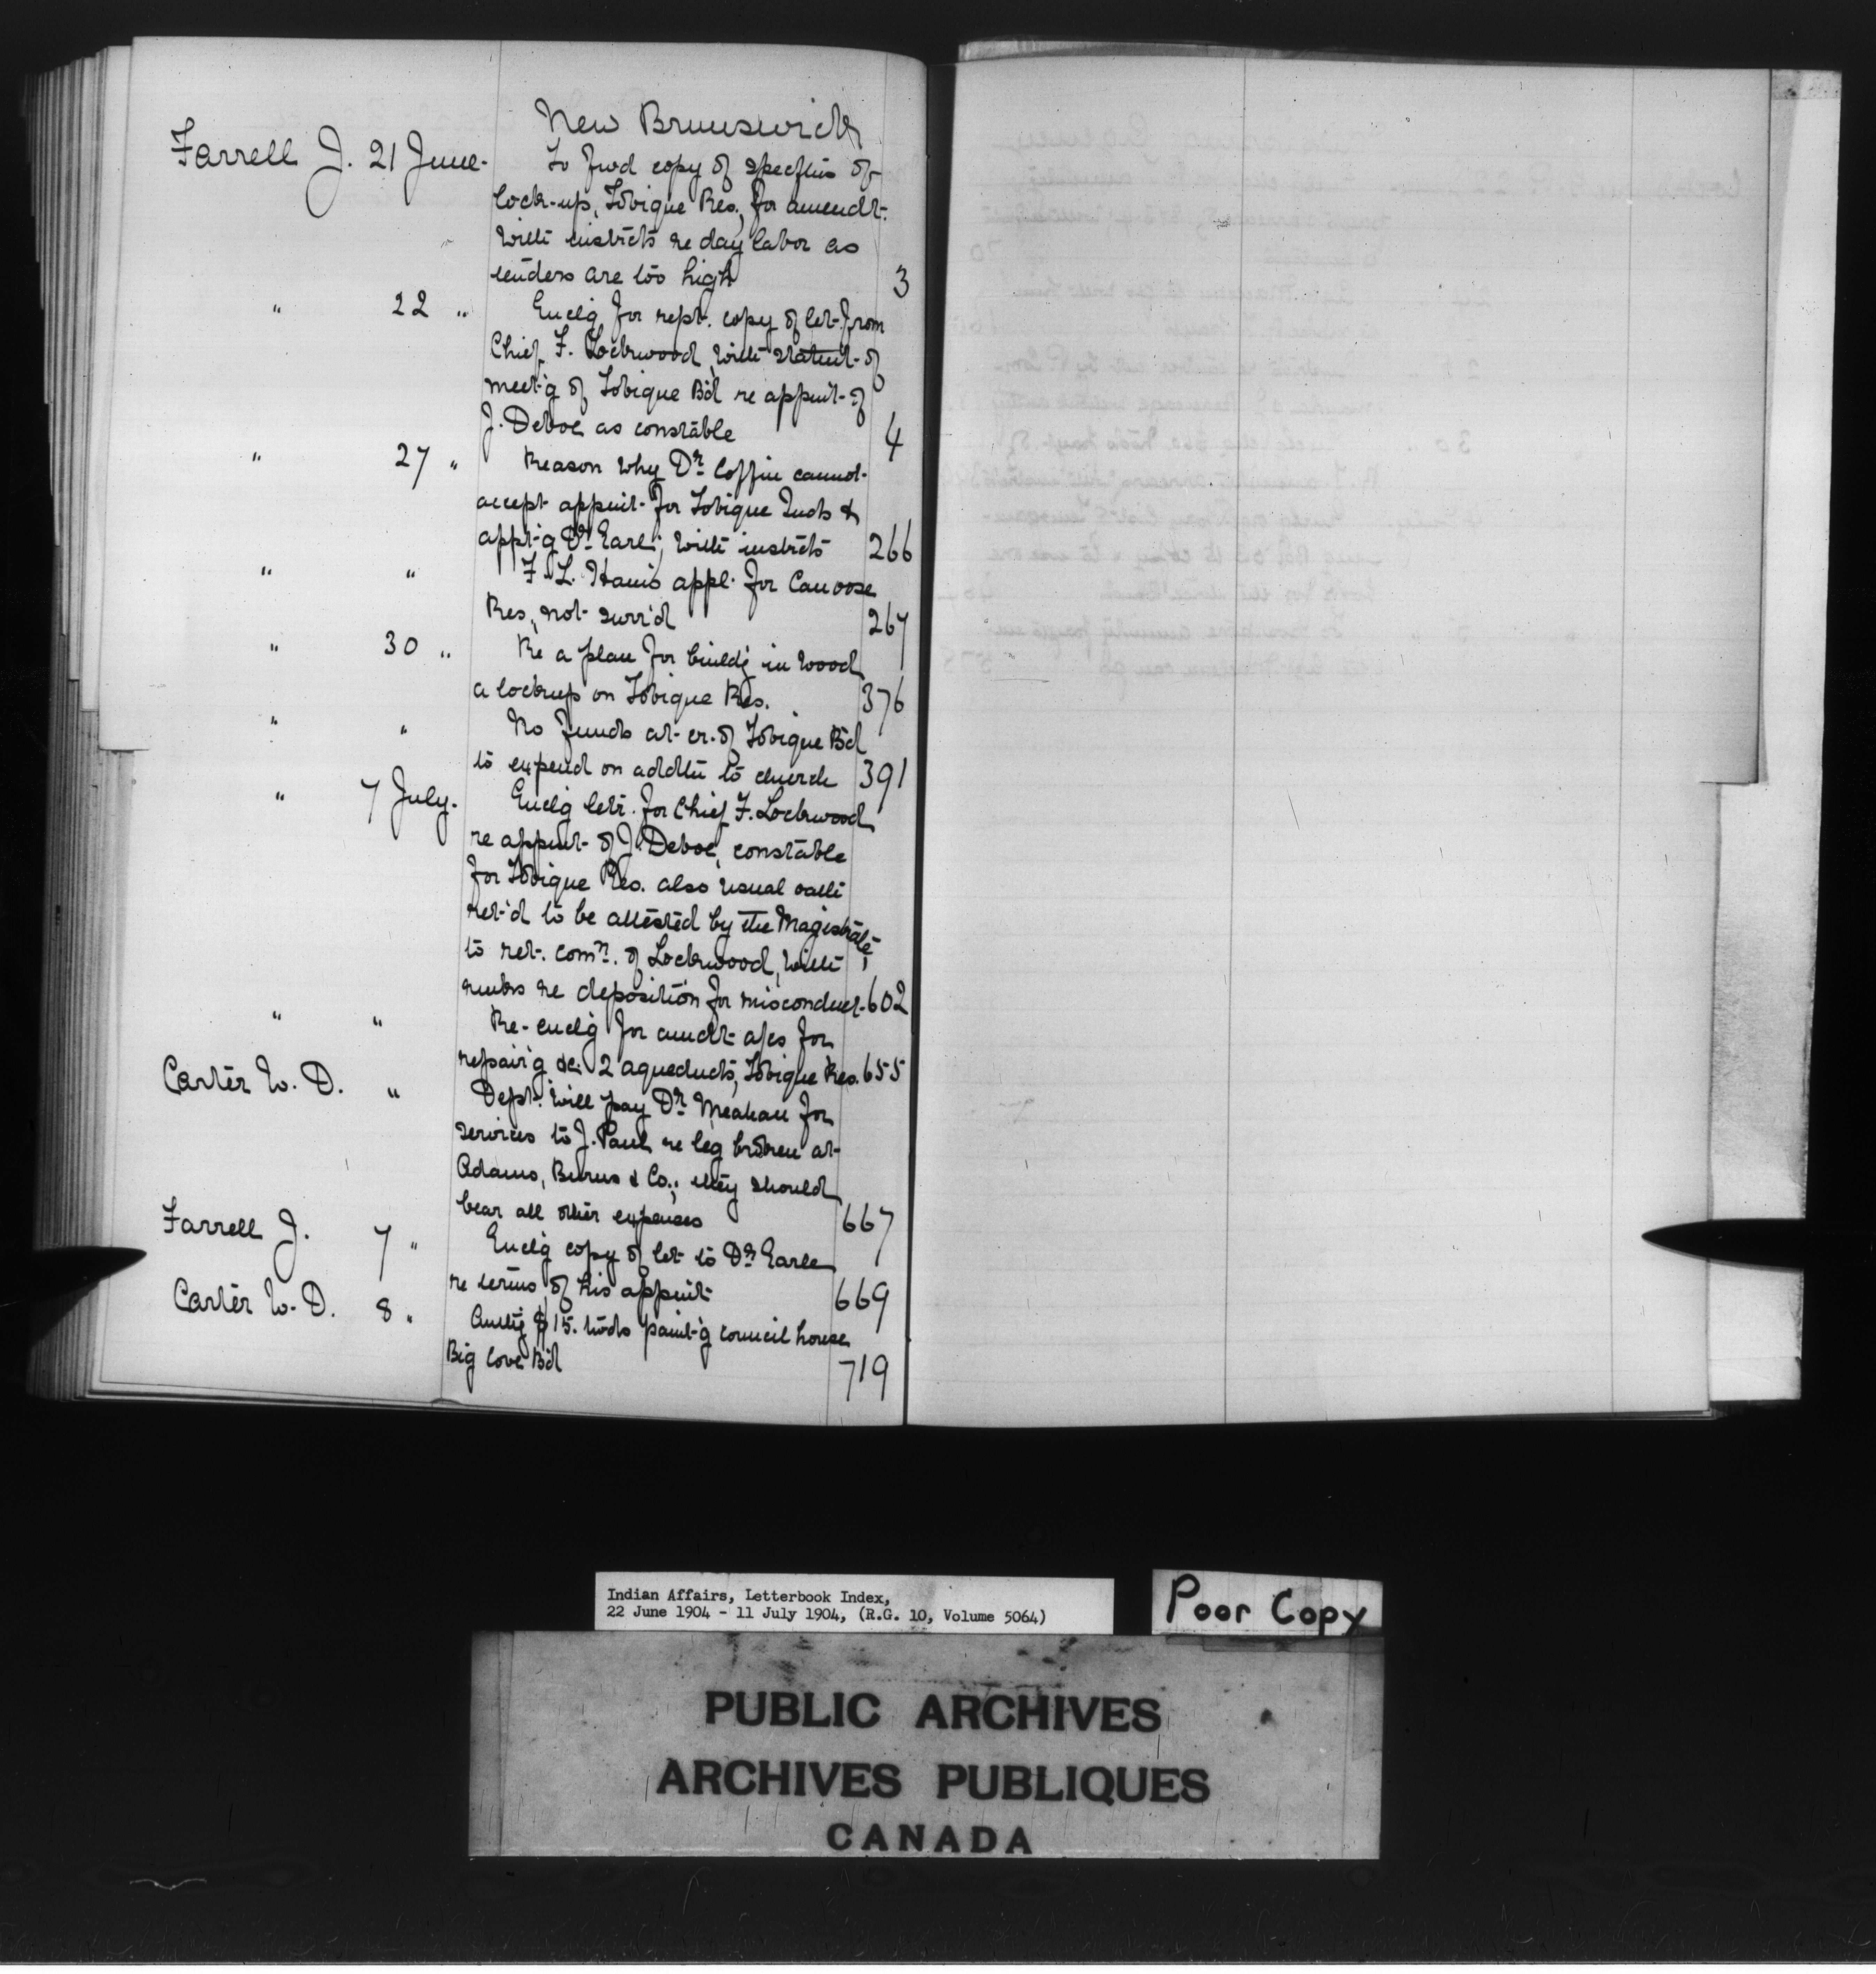 New Brunswick
Farrell J. 21 June. To fwd copy of specftns of
lock-up, Tobique Res., for amendt.
with instrcts re day labor as
tenders are too high 3
" 22 " Enclg for rept. copy of let. from
Chief F. Lockwood, with statmt. of
meet'g of Tobique B'd re appmt. of
J. Deboe as constable 4
" 27 " Reason why Dr. Coffin cannot
accept appmt. for Tobique Inds &
appt'g Dr. Earle; with instrcts 266
" " F. L. Ham's appl. for Canoose
Res., not surr'd 267
" 30 " Re a plan for buildg in wood
a lockup on Tobique Res. 376
" " No funds at cr. of Tobique B'd
to expend on addtn to church 391
" 7 July. Enclg letr. for Chief F. Lockwood
re appmt. of J. Deboe, constable
for Tobique Res. also usual oath
ret'd to be attested by the Magistrate;
to ret. comn. of Lockwood, with
re deposition for misconduct. 602
" " Re-enclg for amdt a/cs for
repair'g &c. 2 aqueducts, Tobique Res. 655
Carter W. D. " Dept. will pay Dr. Meahan for
services to J. Paul re leg broken at
Adams, Burns & Co.; they should
bear all other expenses 667
Farrell J. 7 " Enclg copy of let. to Dr. Earle
re terms of his appmt. 669
Carter W. D. 8 " Authg $15. twds paint'g council house
Big Cove B'd 719
Indian Affairs, Letterbook Index,
22 June 1904 - 11 July 1904, (R.G. 10, Volume 5064)
Poor Copy
PUBLIC ARCHIVES
ARCHIVES PUBLIQUES
CANADA